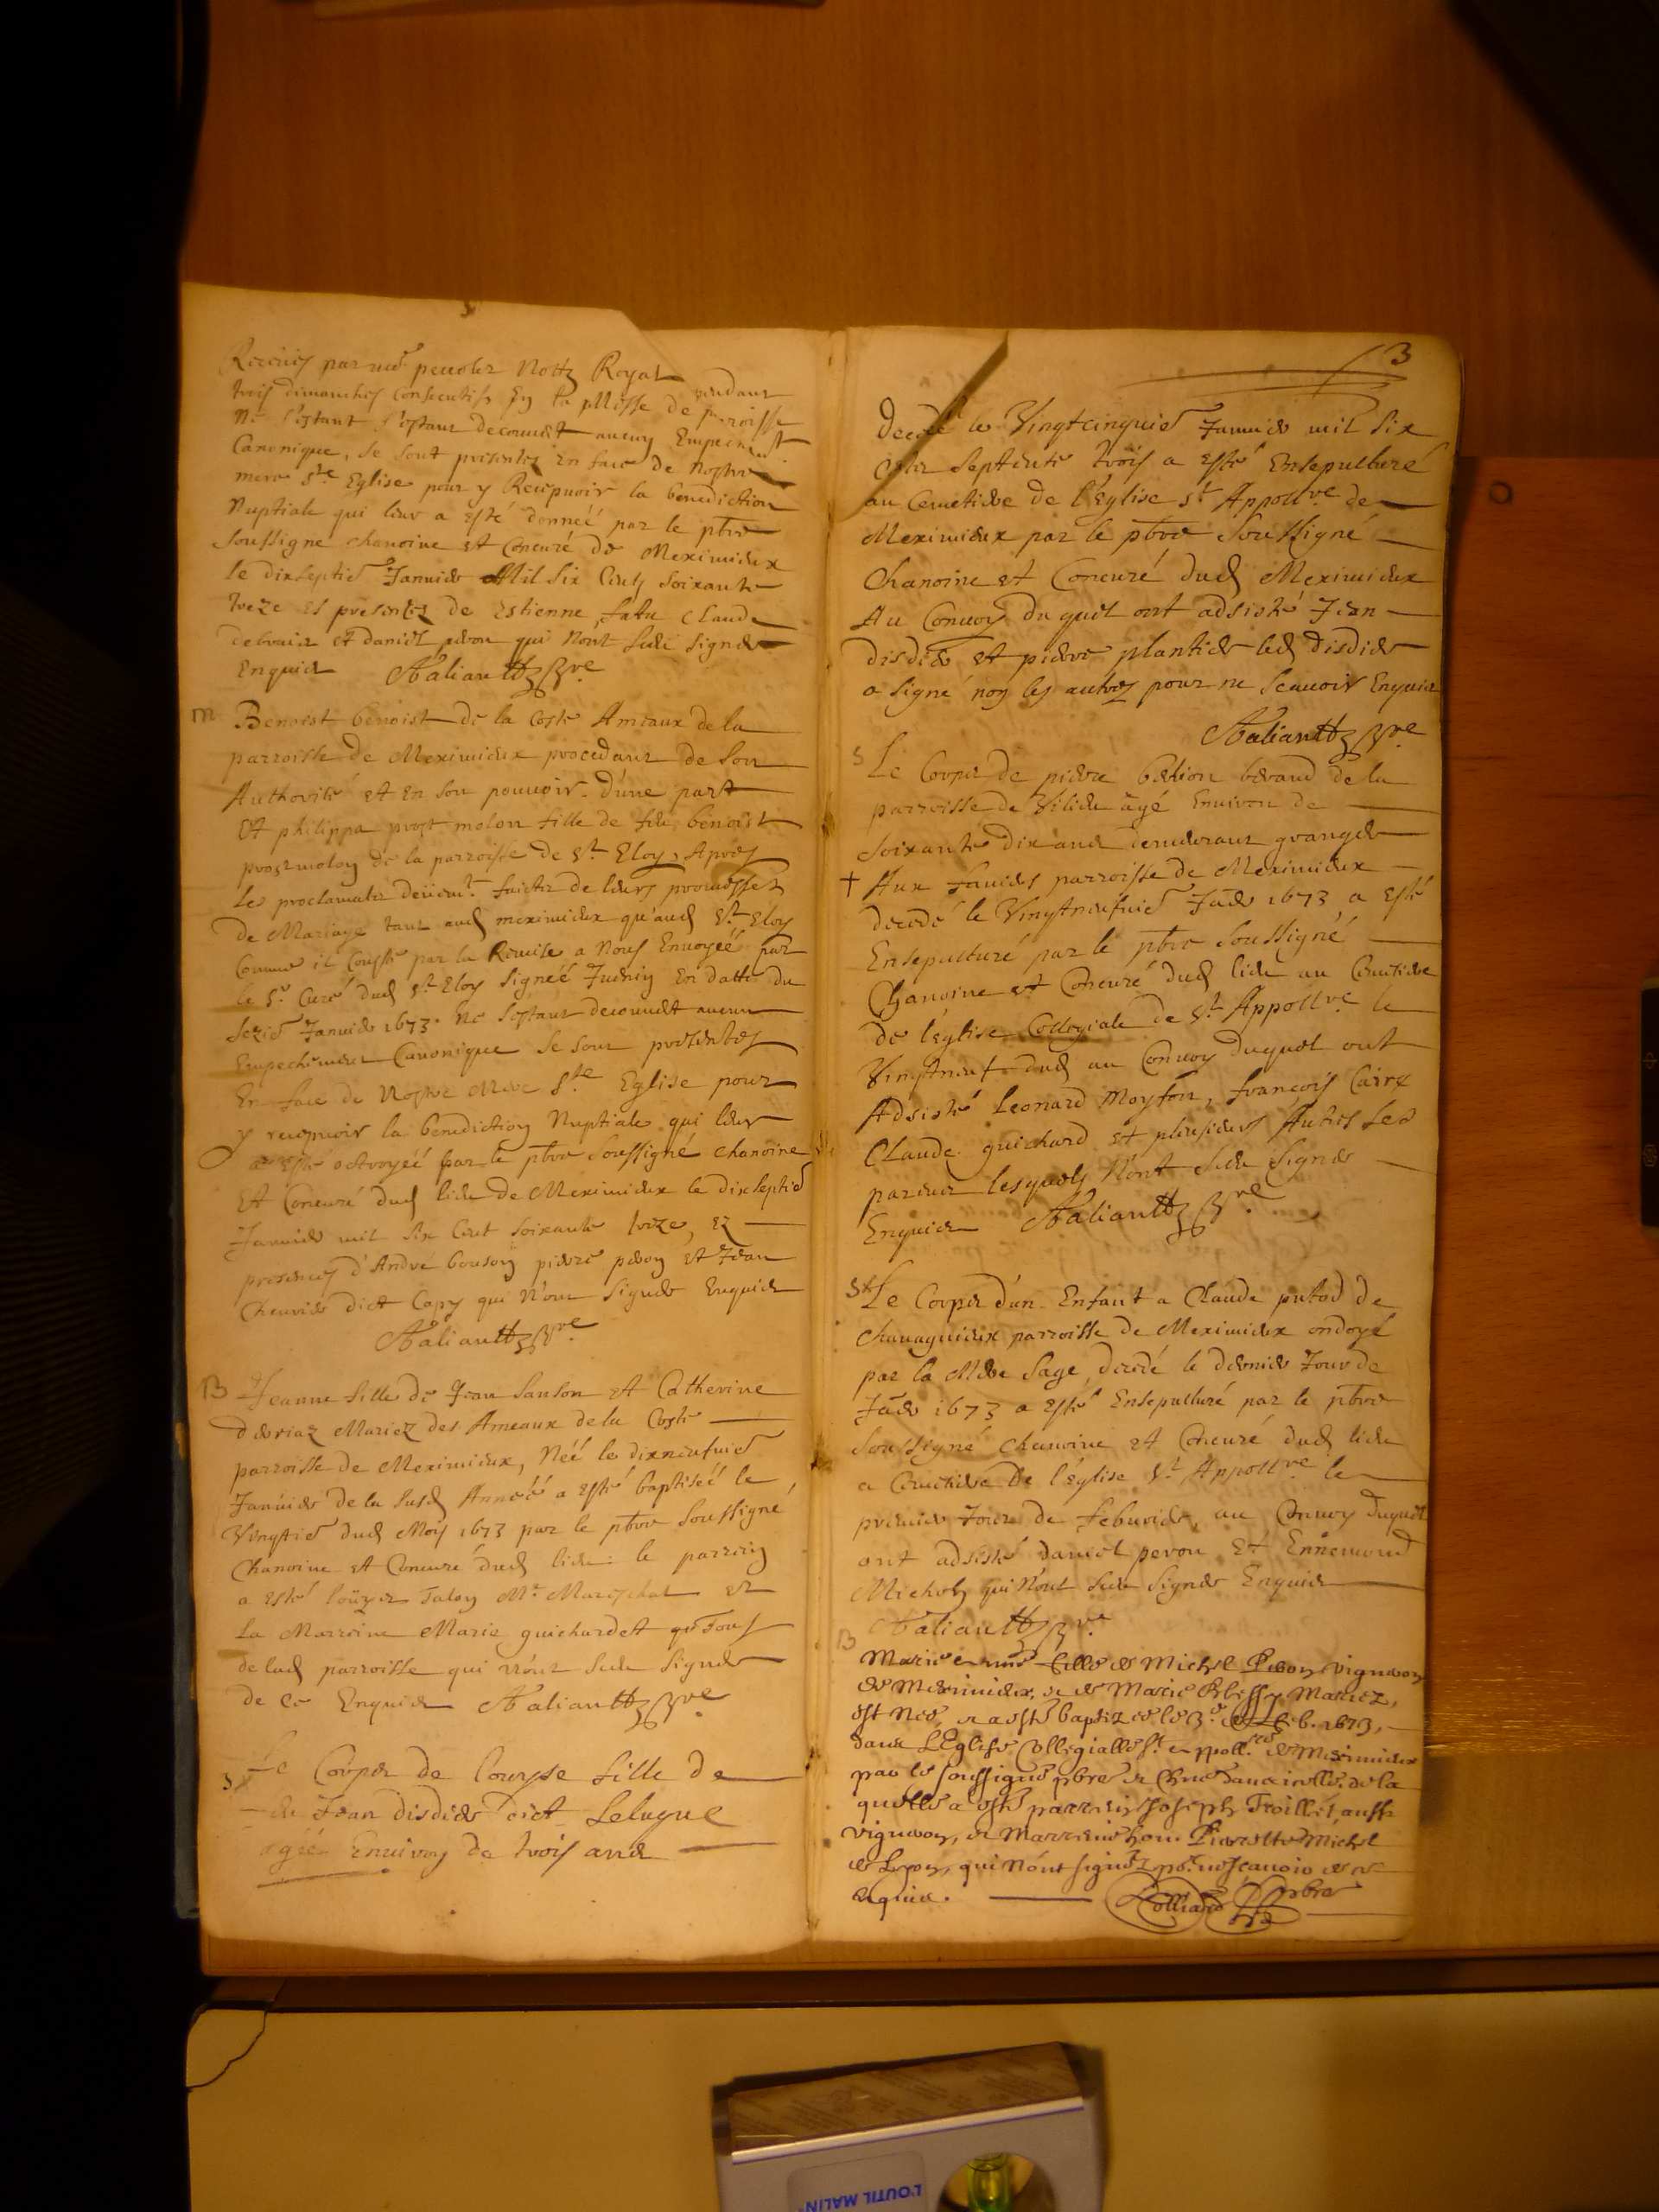 Receües par me perrolez Nottz Royal
trois dimanches Consecutifs En la Messe de parroisse
Ne s'estant s'estant decouvert aucun Empechemt
Canonique, se sont presentez En face de nostre
mere Ste Eglise pour y Recepuoir la benediction
Nuptiale qui leur a esté donneé par le pbre
soussigne chanoine et Concuré de Meximieux
le dixseptie Januier Mil six Cents soixante
treze Es presences de Estienne, Claude
et daniel peron qui n'ont sceu signer
Enquis Aaliauttz pbre
m Benoist benoist de la Coste Ameaux de la
parroisse de Meximieux procedant de son
Authorité et en son pouuoir d'une part
Et philippa prost molon fille de feu benoist
prost molon de la parroisse de St Eloy, Apres
les proclamates deüemt faictes de leurs promesses
de Mariage tant aud meximieux qu'aud St Eloy
Comme il Conste par la Remise a Nous Enuoyeé par
le Sr Curé dud St Eloy signeé Juenin En datte du
sezie Januier 1673. ne s'estant decouuert aucun
Empechement Canonique se sont presentes
En face de Nostre Mere Ste Eglise pour
y recepuoir la benediction Nuptiale qui leur
a esté octroyeé par le pbre soussigné chanoine
Et Concuré dud lieu de Meximieux le dixseptie
Januier mil six Cent soixante treze, Ez
presences d'André bouson pierre peron et Jean
Cheurier dict Capy qui n'ont signer Enquis
Aaliauttz pbre
B Jeanne fille de Jean Sanson et Catherine
deriaz Mariez des Ameaux de la Coste
parroisse de Meximieux, Neé le dixneufuie
Januier de la susd Anneé a esté baptiseé le
Vingtie dud Mois 1673 par le pbre soussigné
Chanoine et Concuré dud lieu le parrein
a esté Talon Mr Mareschal et
la Marreine Marie guichardet qu Tous
de lad parroisse qui n'ont sceu signer
de ce Enquis Aaliauttz pbre
S Le Corps de Louyse fille de
feu Jean disdier dict Leluque
ageé Enuiron de trois ans
3
decedé le Vingtcinquie Januier mil six
Cent septente trois a esté Ensepulturé
au Cemetiere de l'Eglise St Appollre de
Meximieux par le pbre soussigné
Chanoine et Concuré dud Meximieux
Au Conuoy du quel ont adsisté Jean
disdier et pierre plantier led disdier
a signé non les autres pour ne scauoir Enquis
Aaliauttz pbre
S Le Corps de pierre berand de la
parroisse de Vilieu agé Enuiron de
soixante dix ans demeurant granger
+ Aux parroisse de Meximieux
decedé le Vingtneufuie Jaer 1673 a esté
Ensepulturé par le pbre soussigné
Chanoine et Concuré dud lieu au Cemetiere
de l'eglise Collegiale de St Appollre le
Vingtneuf dud au Conuoy duquel ont
Adsisté Leonard Moyson, francois Cairy
Claude guichard et plusieurs Autres ses
parens lesquels n'ont sceu signer
Enquis Aaliauttz pbre
S Le Corps d'un Enfant a Claude putod de
chauagnieux parroisse de Meximieux ondoyé
par la Mere Sage, decedé le dernier Jour de
Jaer 1673 a esté Ensepulturé par le pbre
soussigné chanoine et Concuré dud lieu
a Cemetiere de l'Eglise St Appollre le
premier Jour de feburier, au Conuoy duquel
ont adsisté daniel peron Et Ennemond
Michol qui n'ont sceu signer Enquis
Aaliauttz pbre
B
Marie fille de Michel Peron vigneron
de Meximieux, et de Marie Mariez,
est Neé, et a esté baptizeé le 3e de feb. 1673,
dans L'Eglise Collegialle St Appollre de Meximieux
par le soussigné pbre et Chne dans icelle, de la
quelle a esté parrein Joseph Troillet aussi
vigneron, et Marreine hon. Pierrette Michel
de Lyon, qui n'ont signé pr ne scauoir de ce
enquis. Colliard pbre
L'OUTIL MALIN